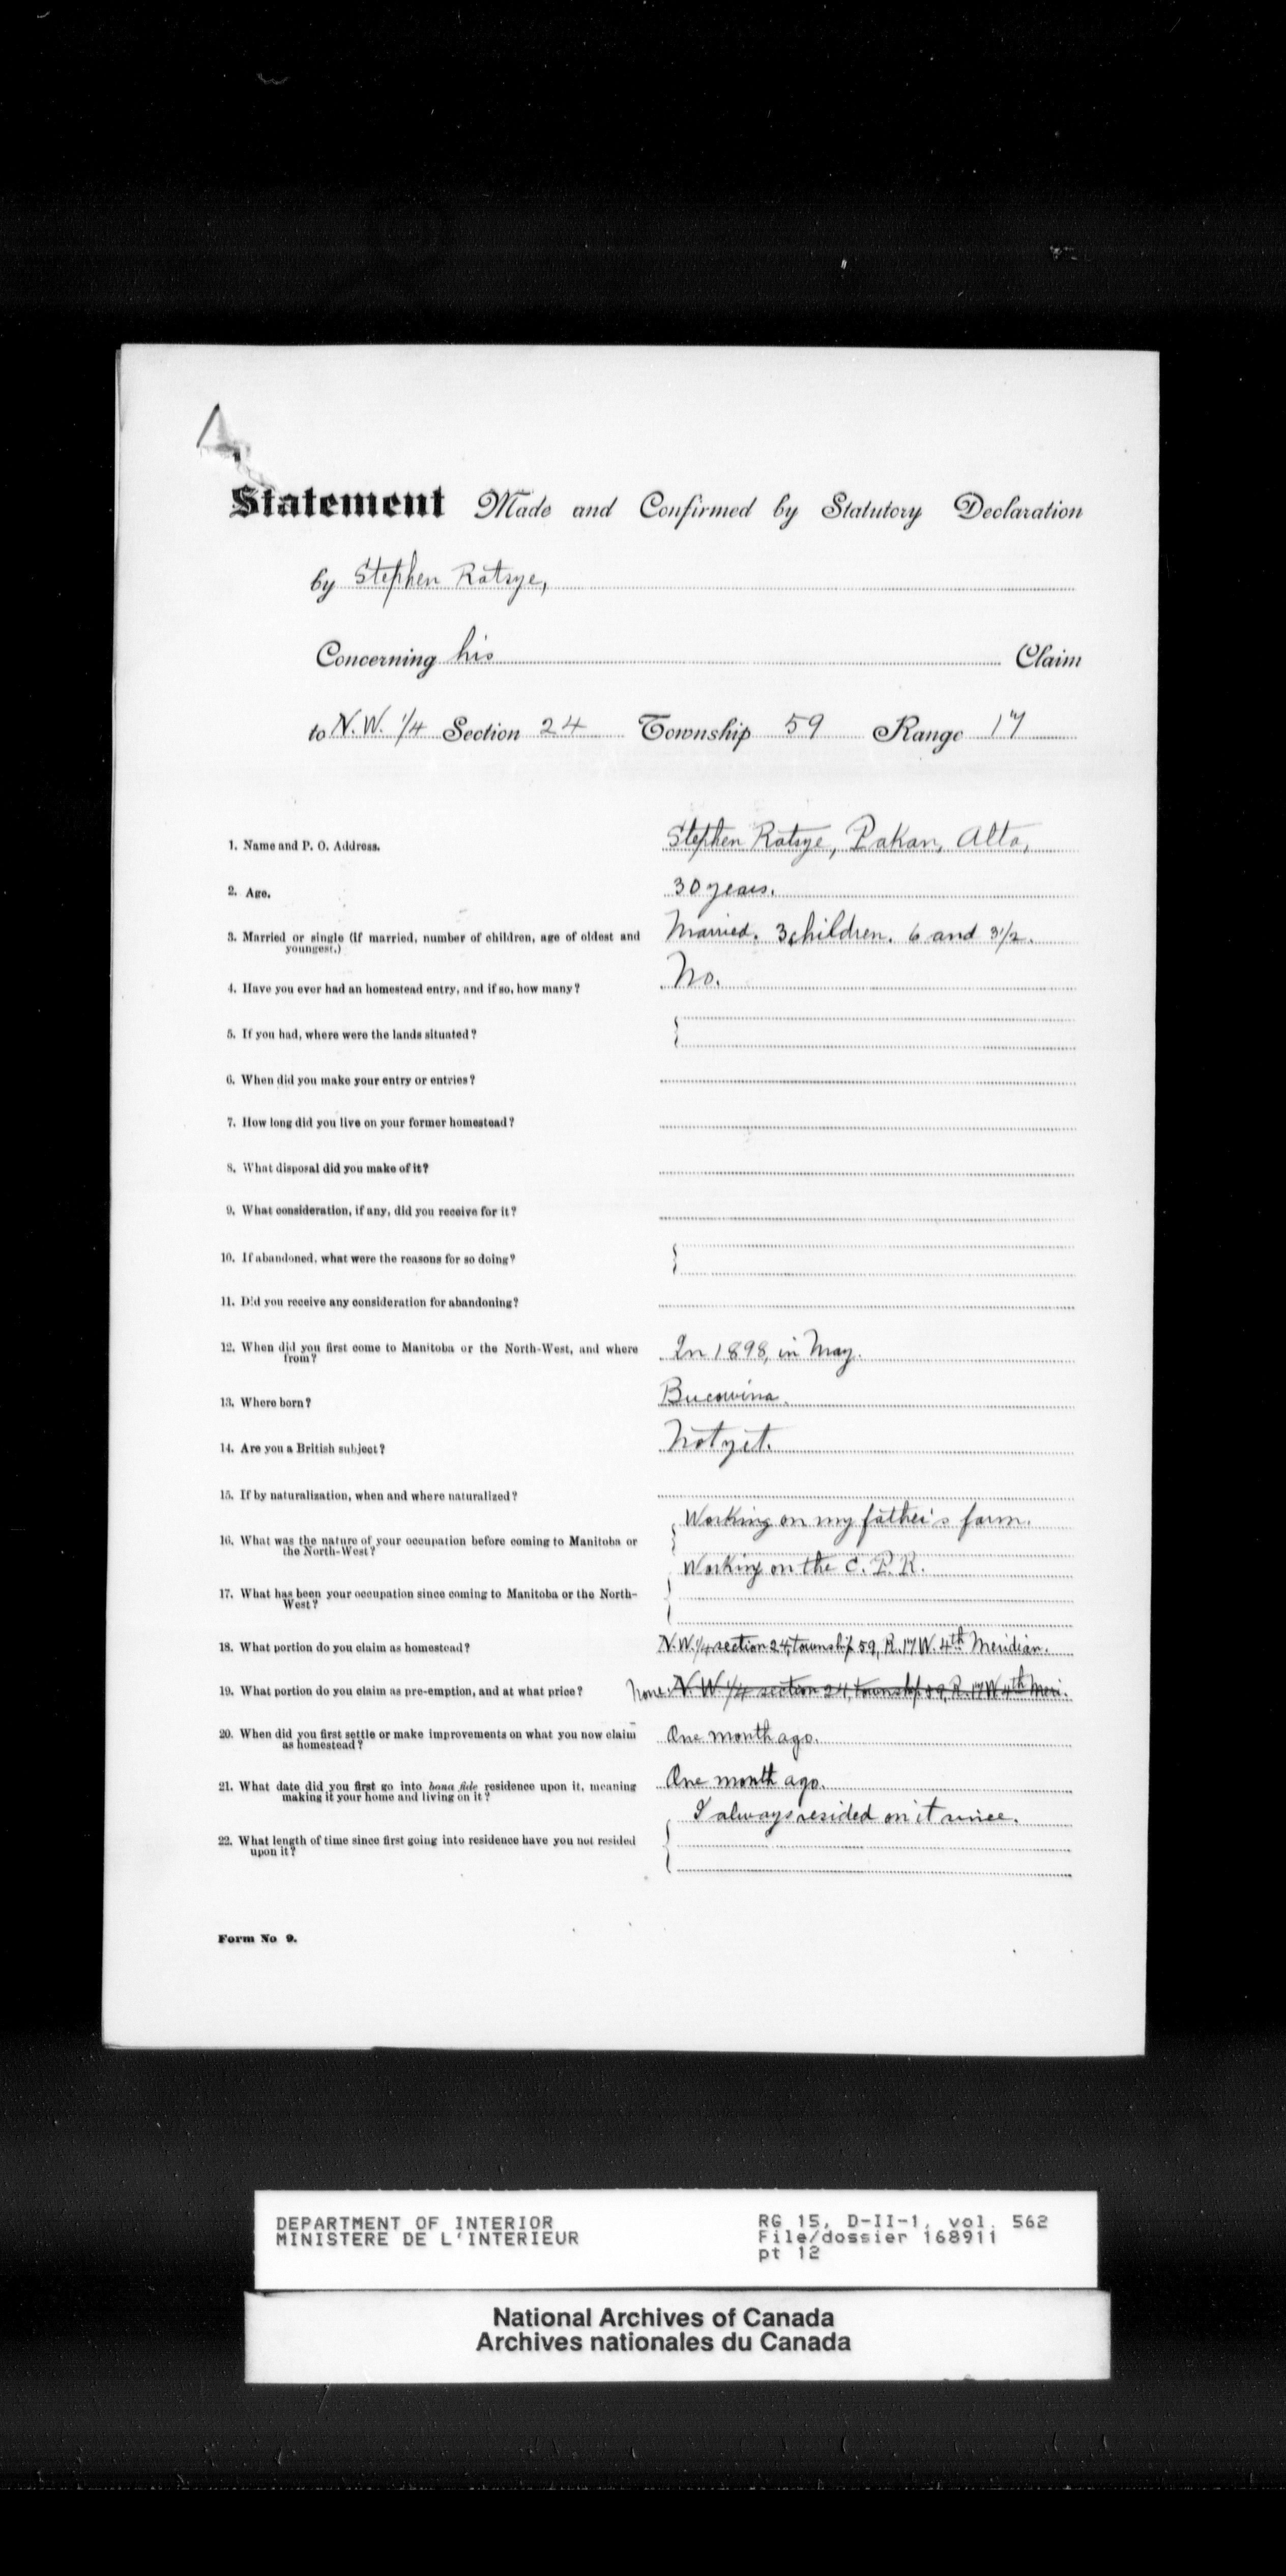 Statement Made and Confirmed by Statutory Declaration
by Stephen Ratsye,
Concerning his Claim
to N.W. 1/4 Section 24 Township 59 Range 17
1. Name and P. O. Address. Stephen Ratsye, Pakan, Alta,
2. Age. 30 years.
3. Married or single (if married, number of children, age of oldest and Married. 3 children. 6 and 3 1/2.
youngest.)
4. Have you ever had an homestead entry, and if so, how many? No.
5. If you had, where were the lands situated?
6. When did you make your entry or entries?
7. How long did you live on your former homestead?
8. What disposal did you make of it?
9. What consideration, if any, did you receive for it?
10. If abandoned, what were the reasons for so doing?
11. Did you receive any consideration for abandoning?
12. When did you first come to Manitoba or the North-West, and where In 1898, in May.
from?
13. Where born? Bucowina.
14. Are you a British subject? Not yet.
15. If by naturalization, when and where naturalized?
Working on my father's farm.
16. What was the nature of your occupation before coming to Manitoba or
the North-West?
Working on the C. P. R.
17. What has been your occupation since coming to Manitoba or the North-
West?
18. What portion do you claim as homestead? N.W. 1/4 section 24, township 59, R. 17 W. 4th Meridian.
19. What portion do you claim as pre-emption, and at what price? None. N. W. 1/4 section 24, township 59, R. 17 W 4th Meri.
20. When did you first settle or make improvements on what you now claim One month ago.
as homestead?
21. What date did you first go into bona fide residence upon it, meaning One month ago.
making it your home and living on it?
I always resided on it since.
22. What length of time since first going into residence have you not resided
upon it?
Form No 9.
DEPARTMENT OF INTERIOR RG 15, D-II-1, vol. 562
MINISTERE DE L'INTERIEUR File/dossier 168911
pt 12
National Archives of Canada
Archives nationales du Canada